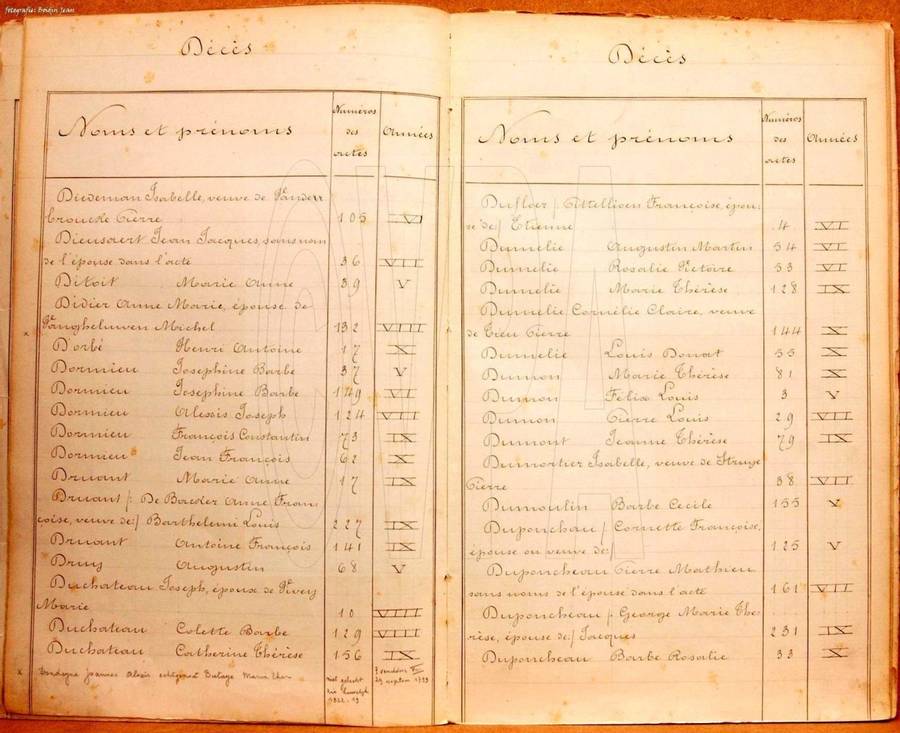 fotografie: Boidin Jean
Décès
Noms et prénoms
Numéros des actes
Années
Diedeman Isabelle, veuve de Vander
broucke Pierre 105 IV
Dieusaert Jean Jacques, sans nom
de l'épouse dans l'acte 36 VIII
Ditoit Marie Anne 39 V
Didier Anne Marie, épouse de
x Vanghelunen Michel 132 VIII
Dorbé Henri Antoine 17 X
Dormieu Josephine Barbe 37 V
Dormieu Josephine Barbe 149 VI
Dormieu Alexis Joseph 124 VIII
Dormieu François Constantin 73 IX
Dormieu Jean François 62 X
Druant Marie Anne 17 IX
Druant /: De Backer Anne Fran
çoise, veuve de:/ Barthelemi Louis 227 IX
Druant Antoine François 141 IX
Druy Augustin 68 V
Duchateau Joseph, époux de
Marie 10 VIII
Duchateau Colette Barbe 129 VIII
Duchateau Catherine Thérèse 156 IX
x Joannes Alexis Marie
Décès
Noms et prénoms
Numéros des actes
Années
Dufloer /: Françoise, épou
se de:/ Etienne 4 VI
Dumelie Augustin Martin 54 VI
Dumelie Rosalie Victoire 53 VI
Dumelie Marie Thérèse 128 IX
Dumelie Cornélie Claire, veuve
de Trieu Pierre 144 X
Dumelie Louis Donat 55 X
Dumon Marie Thérèse 81 X
Dumon Félix Louis 3 V
Dumon Pierre Louis 29 VII
Dumont Jeanne Thérèse 79 IX
Dumortier Isabelle, veuve de
Pierre 38 VII
Dumoulin Barbe Cecile 155 V
Duponchau /: Cornette Françoise,
épouse ou veuve de: 125 V
Duponcheau Pierre Mathieu
sans noms de l'épouse dans l'acte 161 VII
Duponcheau /: George Marie Thé
rèse, épouse de:/ Jacques 231 IX
Duponcheau Barbe Rosalie 33 X